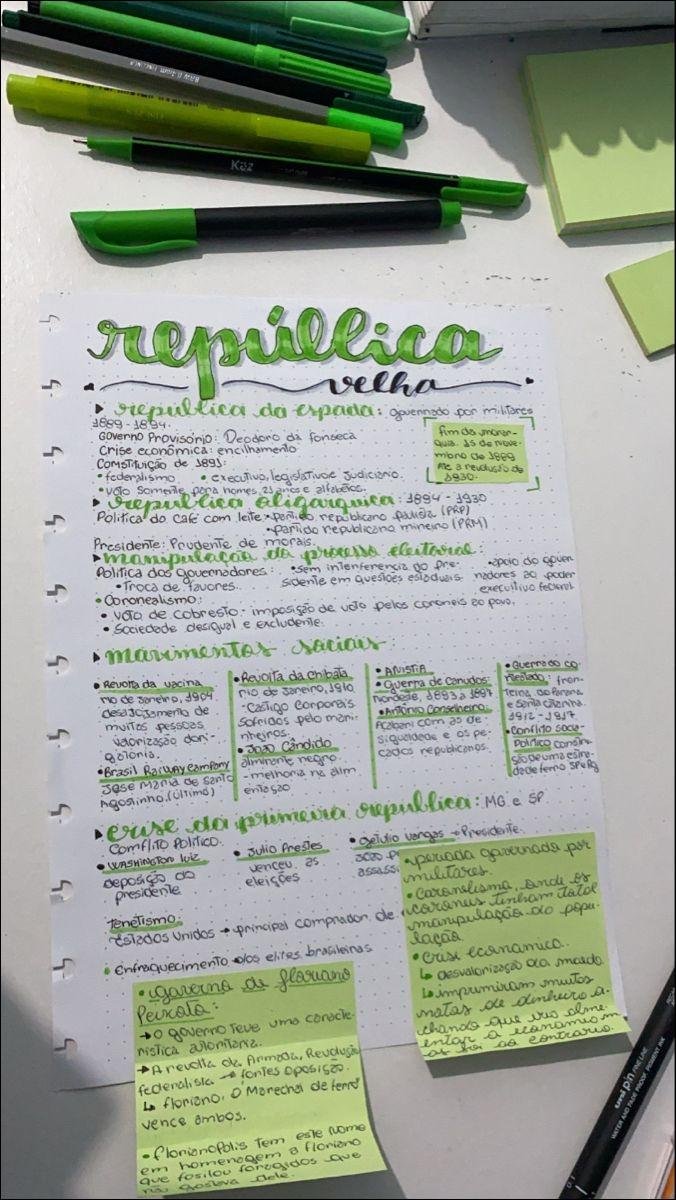 Kaz
repúllica
velha
república da espada: governado por militares
1889-1894.
Governo Provisório: Deodoro da fonseca
Crise econômica: encilhamento
Constituição de 1891:
•federalismo. •executivo, legislativo e judiciário.
•voto somente para homes, 21 anos e alfabetos.
fim da monar-
quia. 15 de nove-
mbro de 1889
Até a revolução de
1930.
república oligarquica: 1894-1930
Política do café com leite•partido republicano paulista (PRP)
•partido republicano mineiro (PRM)
Presidente: Prudente de morais.
manipulação do processo eleitoral:
Política dos governadores: •sem interferencia do pre-
sidente em questões estaduais
•apoio do gover
nadores ao poder
executivo federal
•Troca de favores.
•Coronealismo:
•voto de cobresto- imposição de voto pelos coroneis ao povo.
•Sociedade desigual e excludente.
movimentos sociais:
•Revolta da vacina
rio de janeiro, 1904
muitas pessoas,
•Brasil Railway Company
José Maria de Santo
Agostinho.(último)
•Revolta da Chibata
rio de janeiro, 1910
-Castigo corporais
sofridos pelo mari-
nheiros.
•João Cândido
almirante negro.
-melhoria na alim
entação
•ANISTIA
•Guerra de Canudos:
Nordeste, 1893 a 1897
•Antônio Conselheiro:
Acabam com as de-
sigualdade e os pe-
cados republicanos.
•Guerra do co
ntestado: fron-
teira do Paraná
e santa catarina.
1912-1917.
•Conflito socio
Político constru-
ção de uma estra-
da de ferro SP e Rg
crise da primeira republica: MG e SP
Comflito Político.
•WASHINGTON luiz
deposição do
presidente
•Julio Prestes
venceu as
eleições
•Getulio Vargas → Presidente.
João P
assass
Tenetismo:
Estados Unidos → principal comprador de
•Enfraquecimento dos elites brasileiras
•periodo governado por
militares.
•Coronelismo, onde os
coroneis tinham total
manipulação do popu-
lação.
•Crise economica.
↳ desvalorização da moeda
↳ imprimiram muitas
notas de dinheiro a-
chando que iria alme-
ntar a economia m
as foi ao contrario.
•Governo de floriano
Peixoto:
→O governo teve uma caracte-
ristica autoritaria.
→A revolta da Armada, Revolução
federalista → fontes oposição.
↳ floriano, O Marechal de ferro
vence ambos.
•Florianopolis tem este nome
em homenagem a floriano
que fosilou foragidos que
não gostava dele.
uni pin FINE LINE
WATER AND FADE PROOF, PIGMENT INK